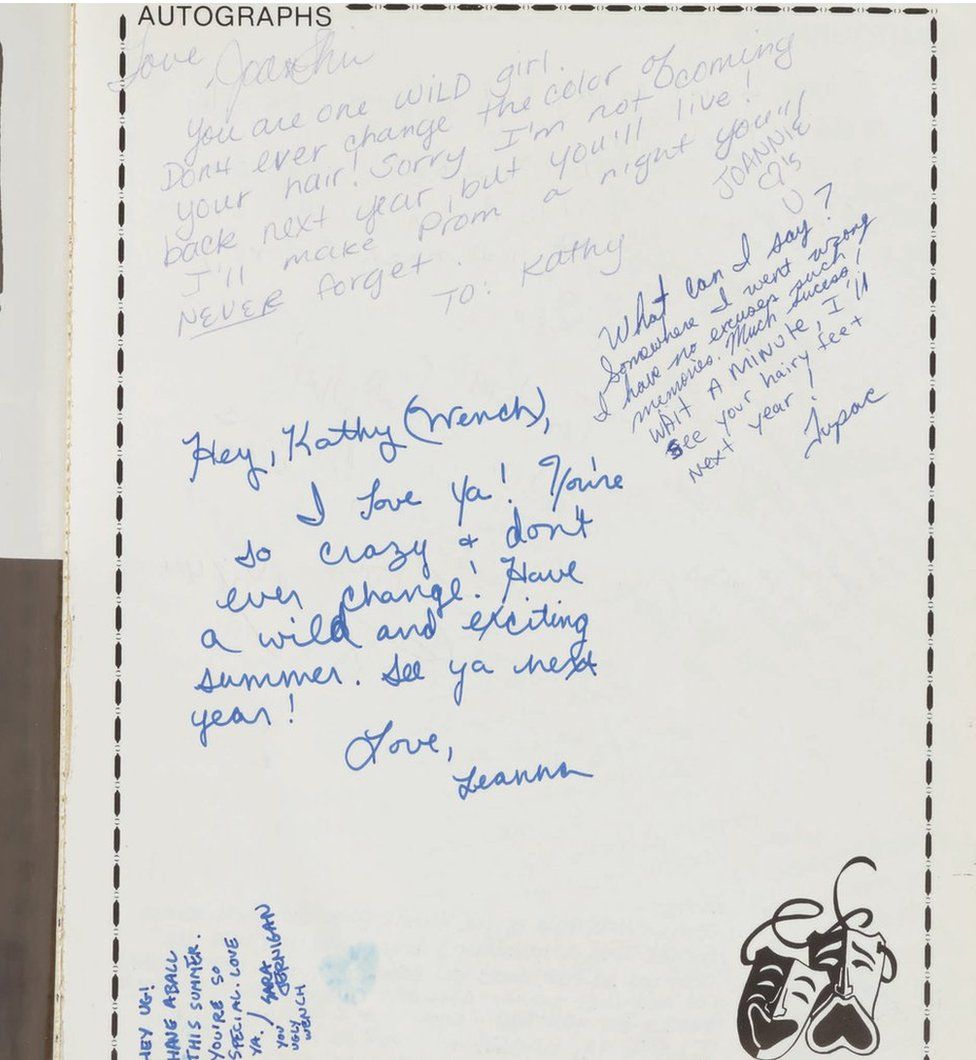 AUTOGRAPHS
Love
You are one WiLD girl.
Don't ever change the color of
your hair! Sorry I'm not coming
back next year, but you'll live!
I'll make Prom a night you'll
NEVER forget.
JOANNIE
TO: Kathy
What can I say?
Somewhere I went wrong
I have no excuses such
memories. Much Sucess!
WAIT A MINUTE, I'll
see your hairy feet
next year!
Tupac
Hey, Kathy (Wench),
I love ya! You're
so crazy & don't
ever change! Have
a wild and exciting
summer. See ya next
year!
Love,
Leanna
HEY UG!
HAVE A BALL
THIS SUMMER.
YOU'RE SO
SPECIAL. LOVE
YA. / SARA
JERNIGAN
YOU
UGLY
WENCH